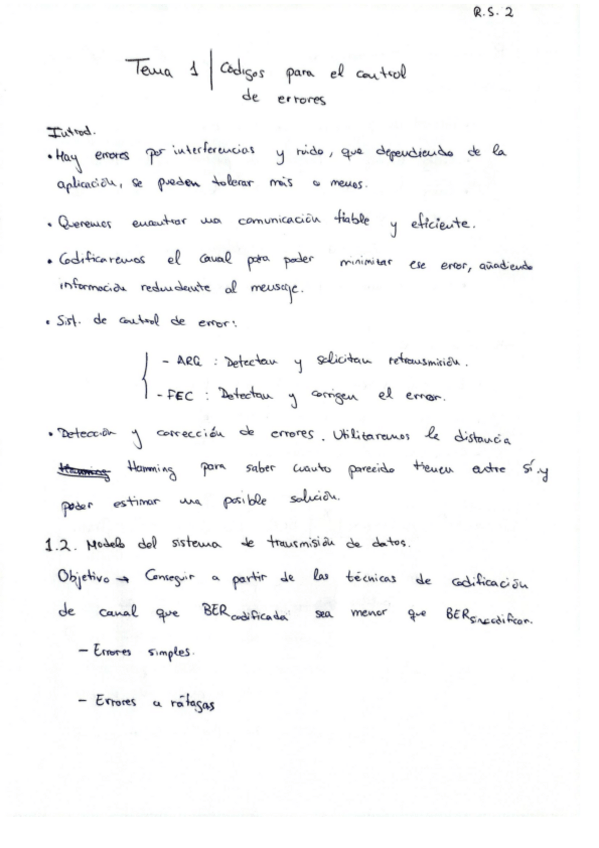 R.S. 2
Tema 1 | Códigos para el control
de errores
Introd.
• Hay errores por interferencias y ruido, que dependiendo de la
aplicación, se pueden tolerar más o menos.
• Queremos encontrar una comunicación fiable y eficiente.
• Codificaremos el canal para poder minimizar ese error, añadiendo
información redundante al mensaje.
• Sist. de control de error:
- ARQ : Detectan y solicitan retransmisión.
- FEC : Detectan y corrigen el error.
• Detección y corrección de errores. Utilizaremos la distancia
Hamming Hamming para saber cuanto parecido tienen entre sí y
poder estimar una posible solución.
1.2. Modelo del sistema de transmisión de datos.
Objetivo → Conseguir a partir de las técnicas de codificación
de canal que BER codificada sea menor que BER sincodificar.
- Errores simples.
- Errores a ráfagas